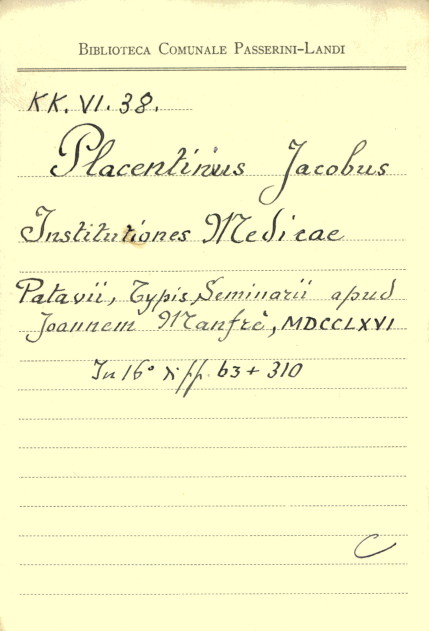 Biblioteca Comunale Passerini-Landi
KK. VI. 38.
Placentinus Jacobus
Institutiones Medicae
Patavii, Typis Seminarii apud
Joannem Manfrè, MDCCLXVI
In 16° 63 + 310
C